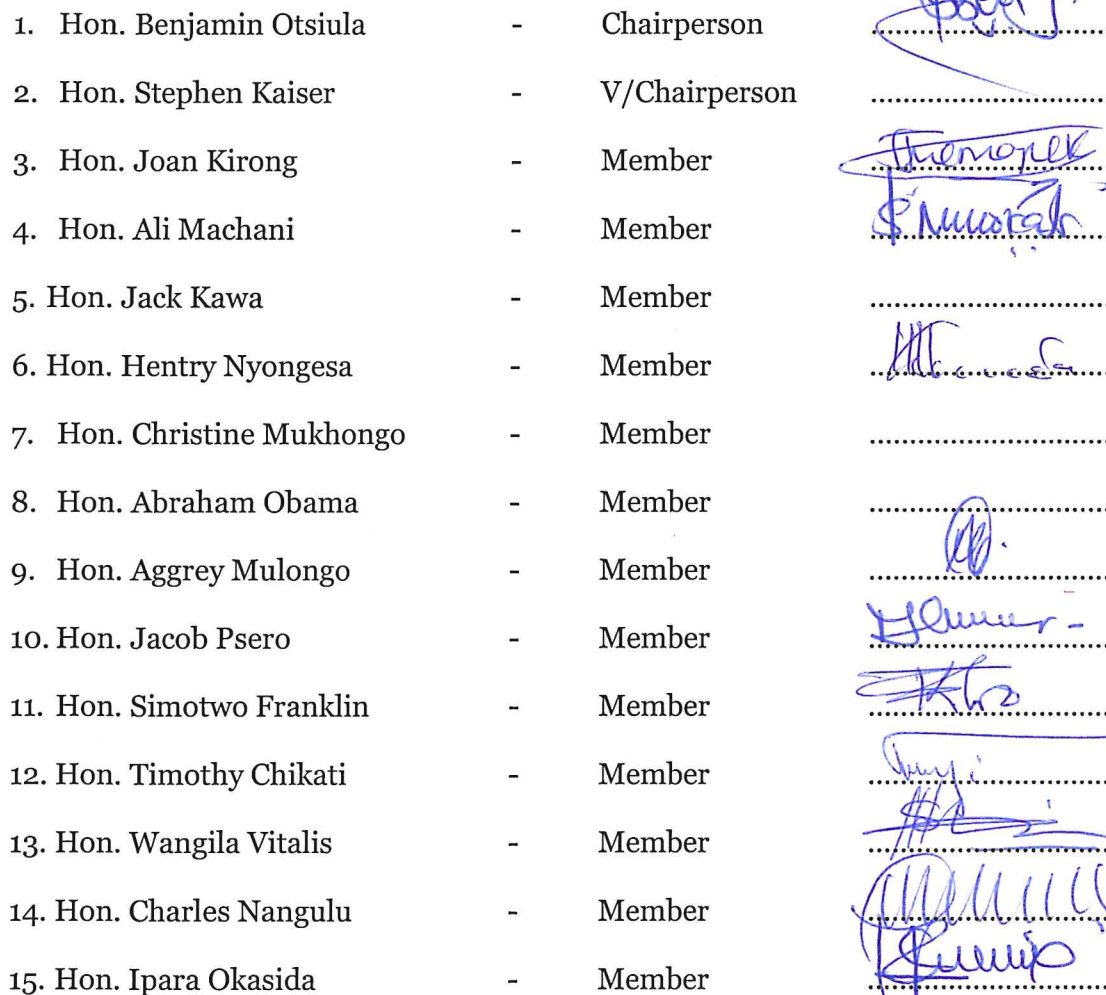 1. Hon. Benjamin Otsiula - Chairperson ..............................
2. Hon. Stephen Kaiser - V/Chairperson ..............................
3. Hon. Joan Kirong - Member ..............................
4. Hon. Ali Machani - Member ..............................
5. Hon. Jack Kawa - Member ..............................
6. Hon. Hentry Nyongesa - Member ..............................
7. Hon. Christine Mukhongo - Member ..............................
8. Hon. Abraham Obama - Member ..............................
9. Hon. Aggrey Mulongo - Member ..............................
10. Hon. Jacob Psero - Member ..............................
11. Hon. Simotwo Franklin - Member ..............................
12. Hon. Timothy Chikati - Member ..............................
13. Hon. Wangila Vitalis - Member ..............................
14. Hon. Charles Nangulu - Member ..............................
15. Hon. Ipara Okasida - Member ..............................